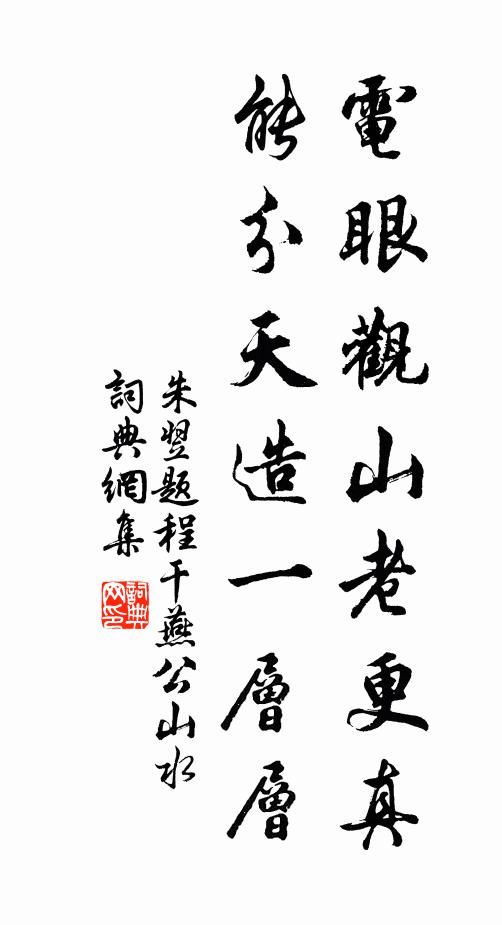 電眼觀山老更真
能分天造一層層
朱翌题程千燕公山水
詞典網集
詞典网印